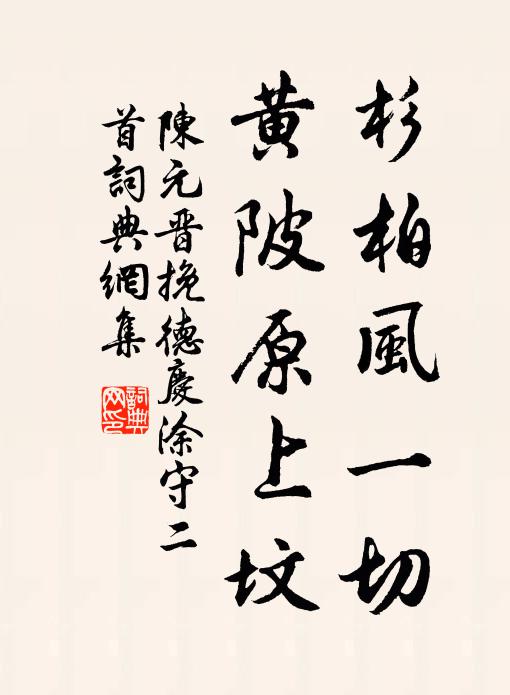 杉柏風一切
黄陂原上坟
陳元晋挽德慶涂守二
首詞典網集
詞典网印